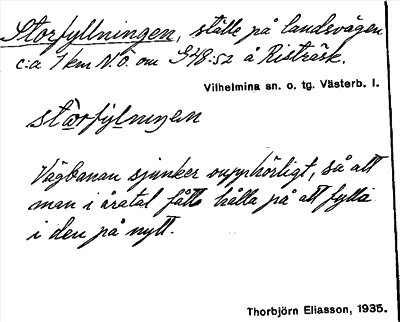 Storfyllningen, ställe på landsvägen
c:a 1 km N.O. om G48:s2 å Risträsk.
Vilhelmina sn. o. tg. Västerb. l.
stɷrfylningen
Vägbanan sjunker oupphörligt, så att
man i åratal fått hålla på att fylla
i den på nytt.
Thorbjörn Eliasson, 1935.